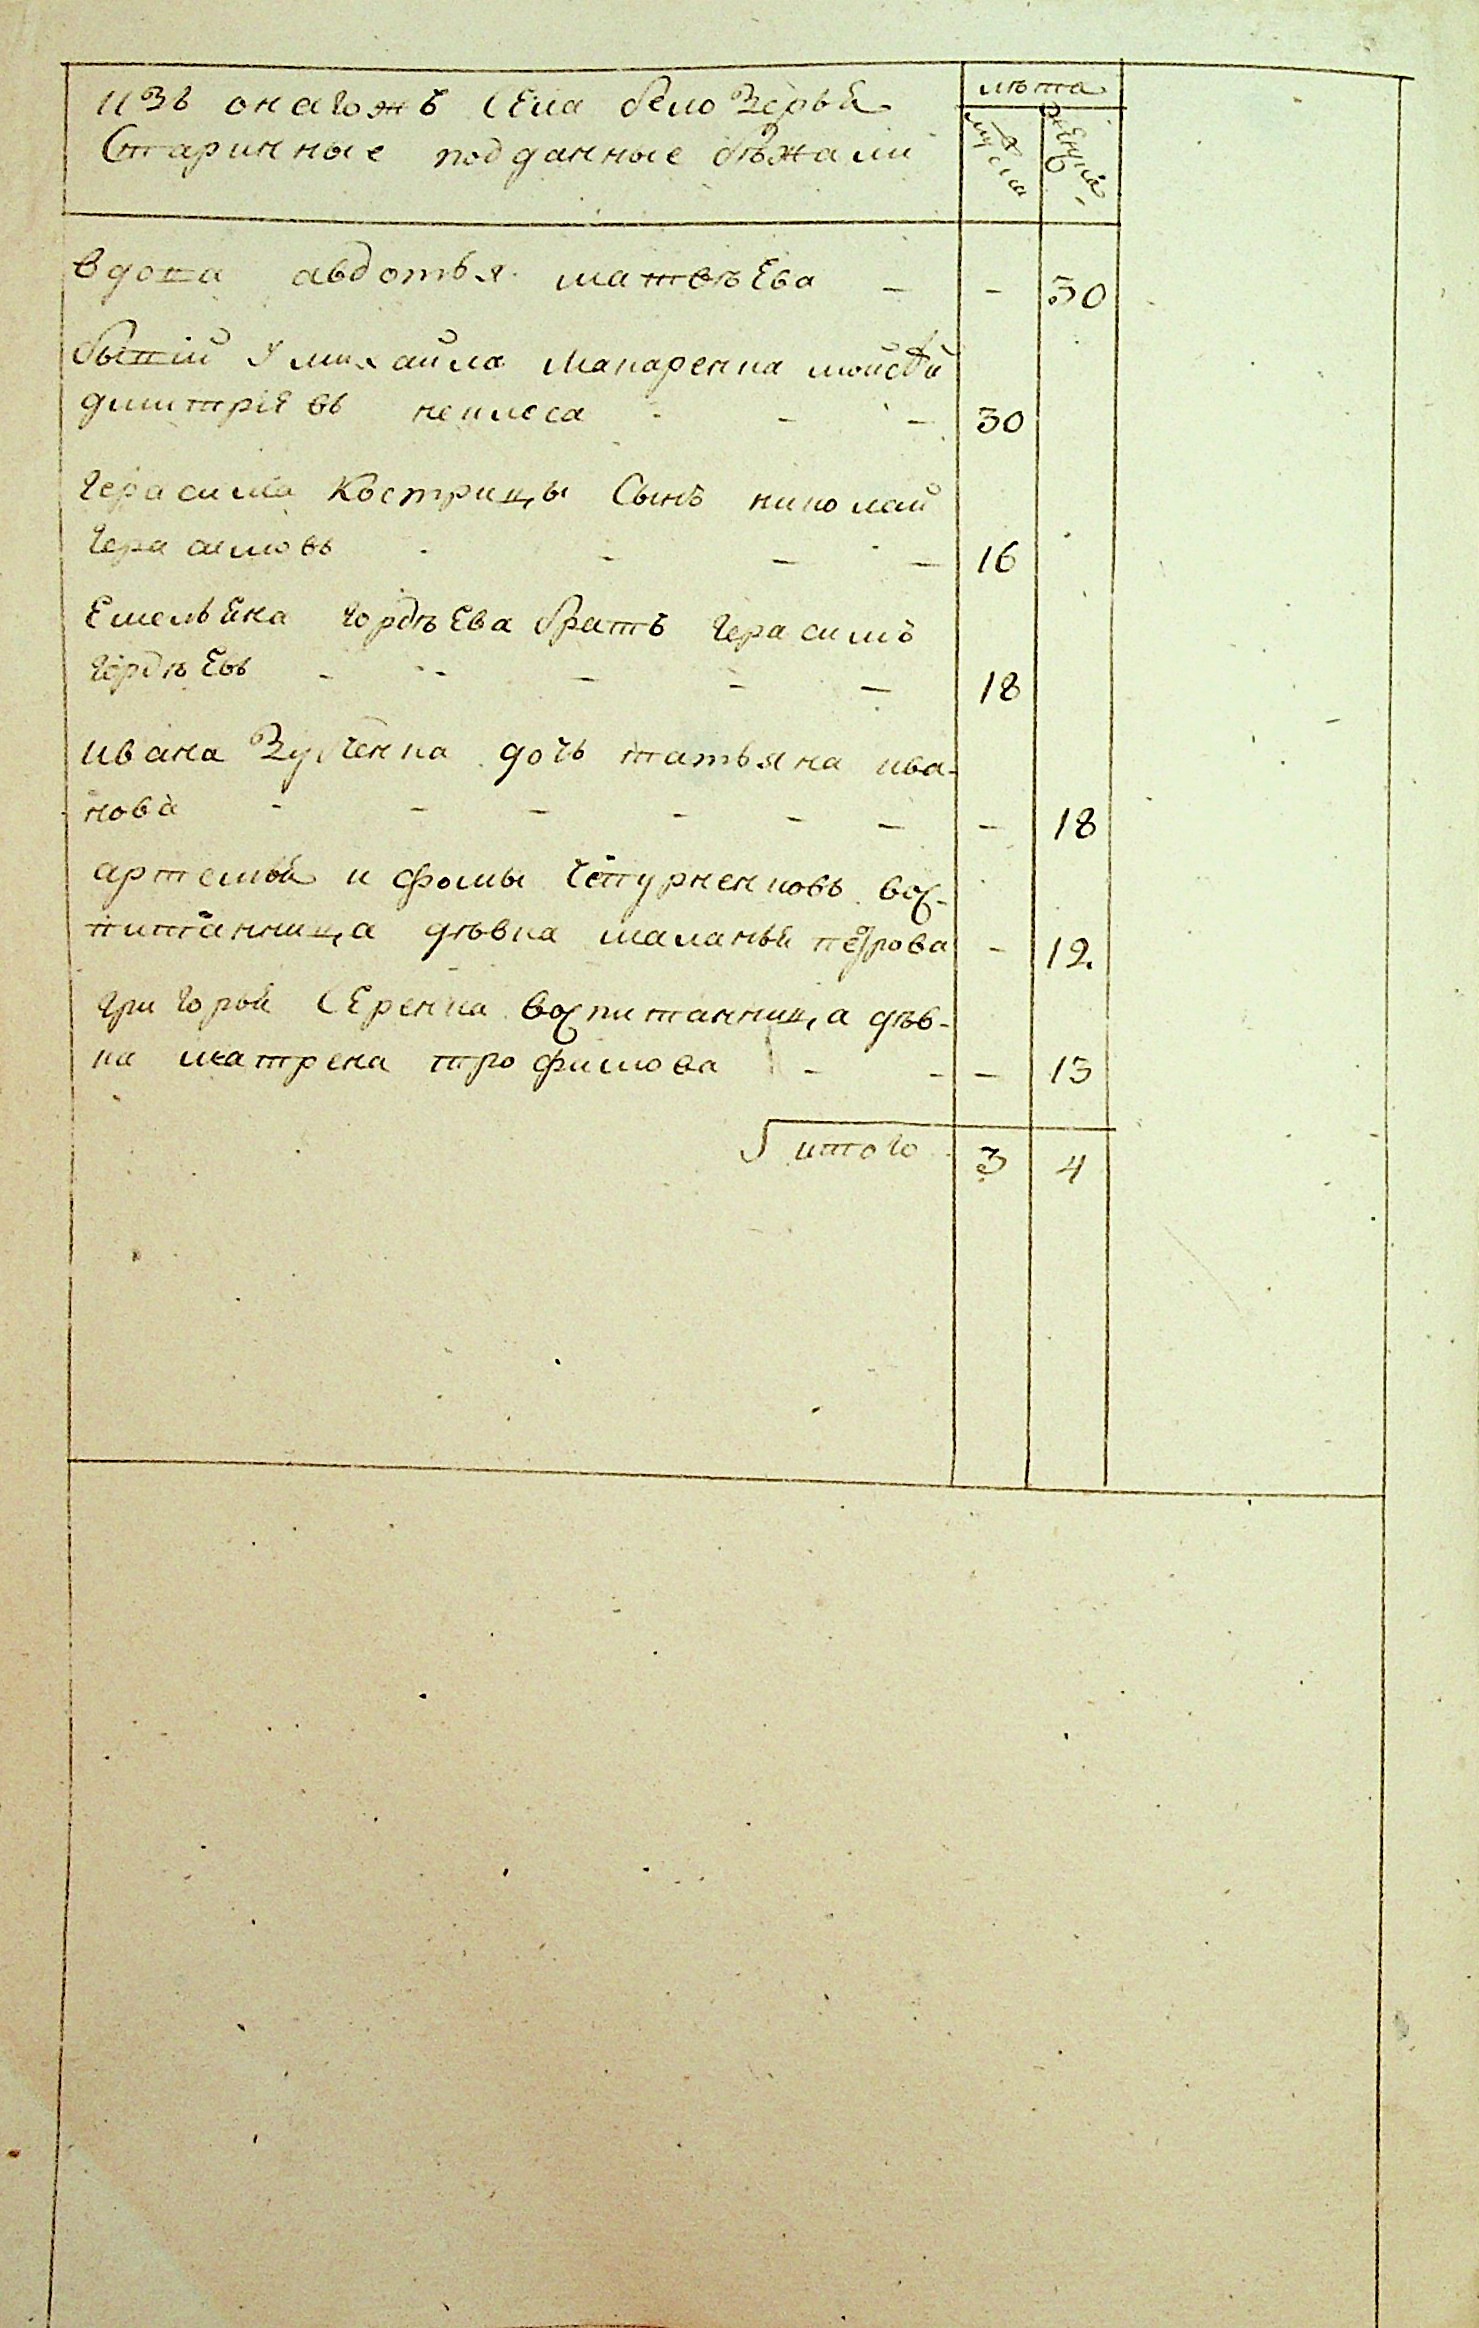 изъ онагожъ села белозерья
лѣта
старинные подданные бѣжали
мужеска
женска
вдова авдотья матвѣева - - 30
бытій у михаила макаренка мойсей
дмитріевъ - - - 30
герасима Кострицы сынъ николай
герасимовъ - - - 16
емельяна гордѣева братъ герасимъ
гордѣевъ - - - - - 18
ивана Зубченка дочь татьяна ива-
нова - - - - - - - 18
артемья и фомы чепурненковъ вос-
питанница дѣвка маланья петрова - 12.
григорья серенка воспитанница дѣв-
ка матрена трофимова - - - 13
итого 3 4